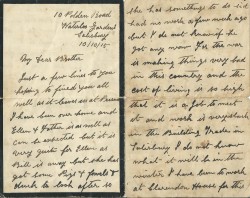 10 Polden Road
Waterloo Gardens
Salisbury
10/10/15
My dear Brother
Just a few lines to you
hoping to find you all
well as it leaves us at
I have been home and
Ellen & Father is as well as
can be expected but it is
very quiet for Ellen as
Bill is away but she has
got some Pigs & fowls &
ducks to look after so
she has something to do
had no work a few weeks ago
but I do not know if he
got any now for the war
is making things very bad
in this country and the
cost of living is so high
that it is a Job to meet
it and work is very dull
in the Building Trades in
Salisbury I do not know
what it will be in the
winter I have been to work
at Clarendon House for the